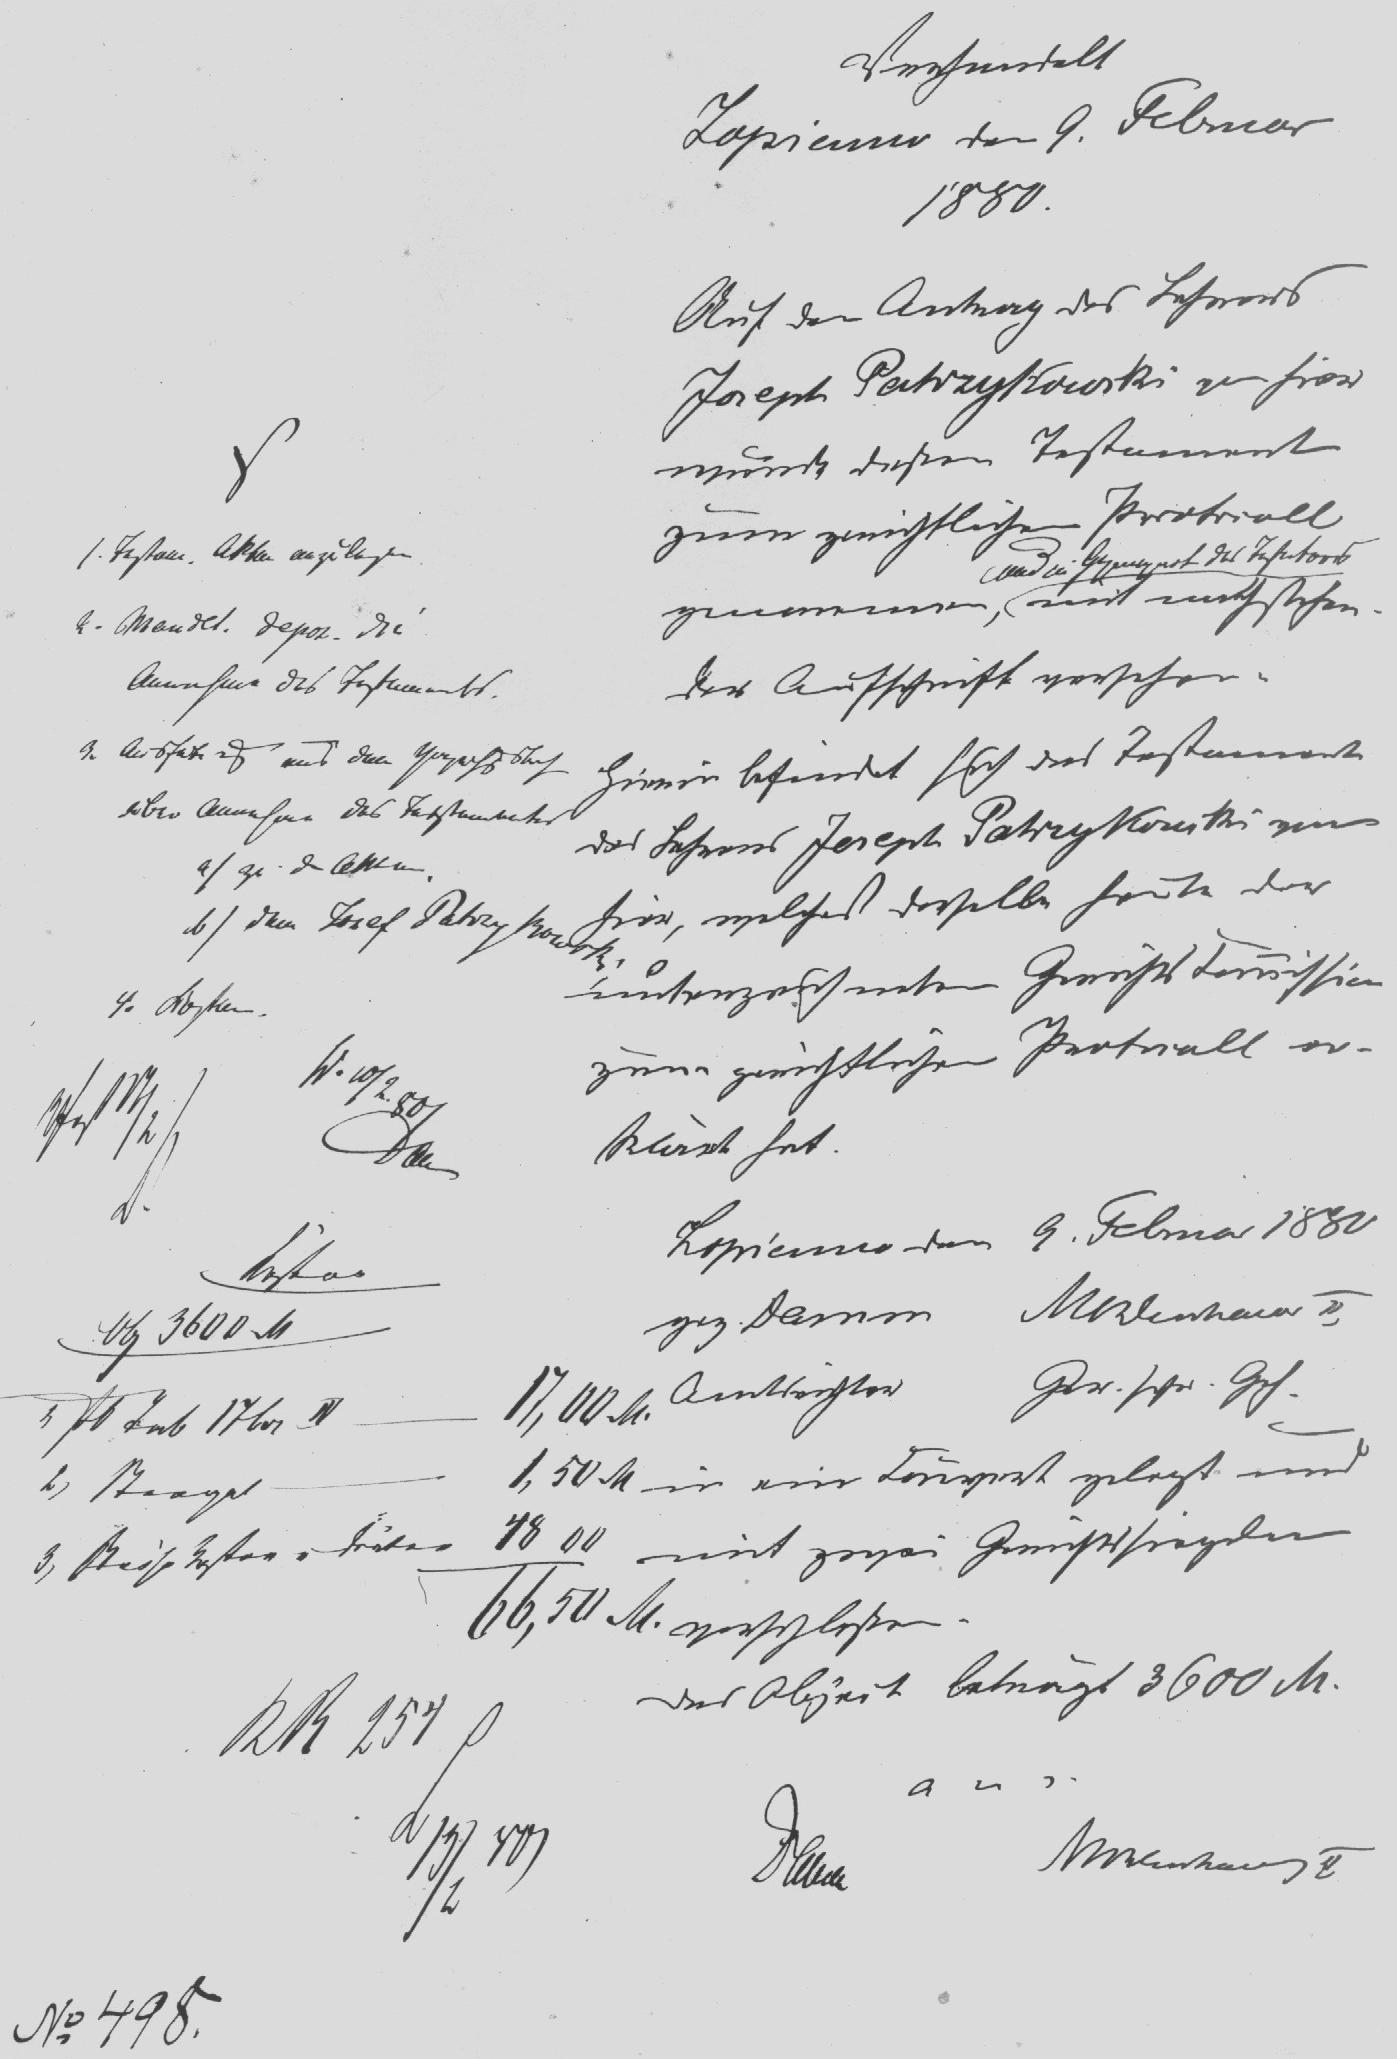 Verhandelt
Lopienno den 9. Februar
1880.
Auf den Antrag des Lehrers
Joseph Patrzykowski von hier
wurde dessen Testament
zum gerichtlichen Protocoll
genommen, und in Gegenwart des Testators mit nachstehen-
der Aufschrift versehen.
Hierin befindet sich das Testament
des Lehrers Joseph Patrzykowski von
hier, welches derselbe heute der
unterzeichneten Gerichts Commission
zum gerichtlichen Protocoll er-
klärt hat.
Lopienno den 9. Februar 1880
gez. Damm
Amtsrichter
in ein Couvert gelegt und
mit zwei Gerichtssiegeln
verschlossen.
Das Object beträgt 3600 M.
a u s.
V
1. Testam. Akten anzulegen
2. Mandel. depos. die
Annahme des Testaments.
3. aus dem
über Annahme des Testamentes
a/ z. d. Akten.
b/ dem Josef Patrzykowski
4. Kosten.
10/2. 80
Kosten
Obj 3600 M
17,00 M.
2, Stempel 1,50 M
3, 48 00
66,50 M.
KR 254
13/2 80
No 498.